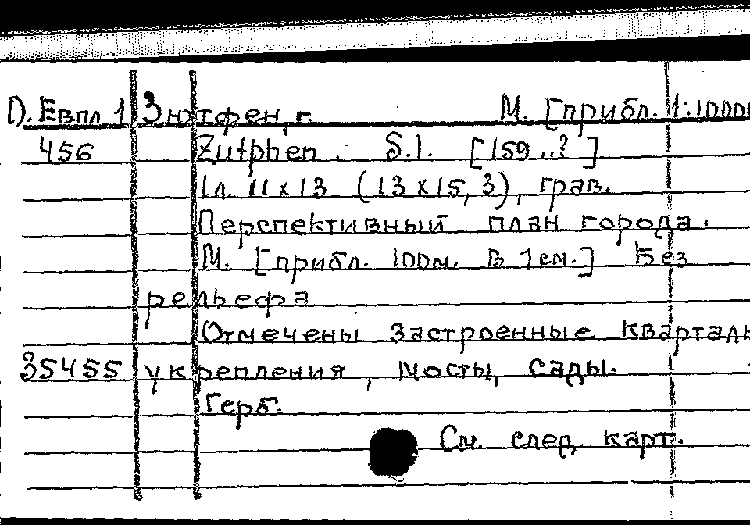 D. Евпл 1 Зютфен, г. М. [прибл. 1:10000
456 Zutphen. S.l. [159..?]
1л. 11x13 (13x15,3), грав.
Перспективный план города.
М. [прибл. 100м. в 1см.] Без
рельефа
Отмечены застроенные квартал
35455 укрепления, мосты, сады.
Герб.
См. след. карт.